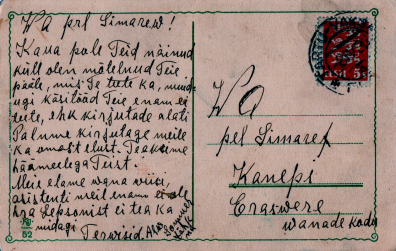 Wa prl Simarew!
Kaua pole Teid näinud
küll olen mõtelnud Teie
pääle, mis Te teete ka, muid-
ugi käsitööd Teie enam ei
teete, ehk kirjutade alati
Palume kirjutage meile
ka omast elust. Teaksime
häämeelega Teist.
Meie elame wana wiisi,
assistenti meil enam ei ole
hra Sepsonist ei tea ka
midagi
Terwisid.
Wa
prl Simaref
Kanepi
Erastwere
wanade kodu
EESTI 5 S
52